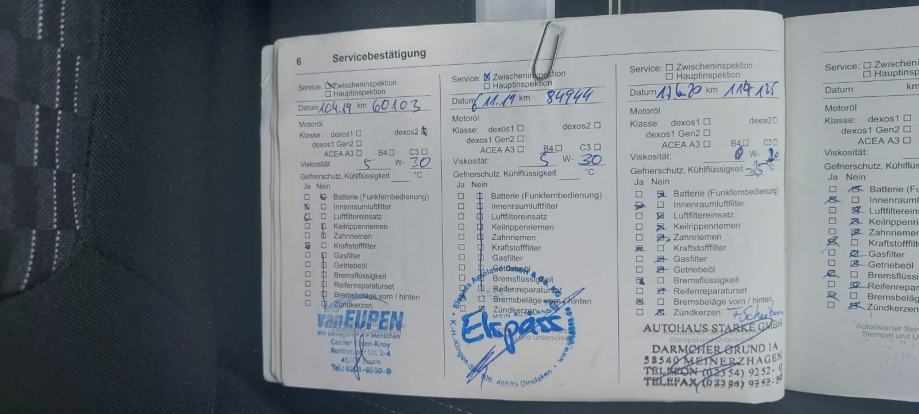 6 Servicebestätigung
Service: Zwischeninspektion
Hauptinspektion
Datum 10.4.19 km 60103
Motoröl
Klasse: dexos1 dexos2
dexos1 Gen2
ACEA A3 B4 C3
Viskosität: 5 W- 30
Gefrierschutz, Kühlflüssigkeit °C
Ja Nein
Batterie (Funkfernbedienung)
Innenraumluftfilter
Luftfiltereinsatz
Keilrippenriemen
Zahnriemen
Kraftstofffilter
Gasfilter
Getriebeöl
Bremsflüssigkeit
Reifenreparaturset
Bremsbeläge vorn / hinten
Zündkerzen
van EUPEN
Service: Zwischeninspektion
Hauptinspektion
Datum 6.11.19 km 84944
Motoröl
Klasse: dexos1 dexos2
dexos1 Gen2
ACEA A3 B4 C3
Viskosität: 5 W- 30
Gefrierschutz, Kühlflüssigkeit °C
Ja Nein
Batterie (Funkfernbedienung)
Innenraumluftfilter
Luftfiltereinsatz
Keilrippenriemen
Zahnriemen
Kraftstofffilter
Gasfilter
Getriebeöl
Bremsflüssigkeit
Reifenreparaturset
Bremsbeläge vorn / hinten
Zündkerzen
Elspass
46539 Dinslaken
Service: Zwischeninspektion
Hauptinspektion
Datum 17.6.20 km
Motoröl
Klasse: dexos1 dexos2
dexos1 Gen2
ACEA A3 B4 C3
Viskosität: 0 W-
Gefrierschutz, Kühlflüssigkeit °C
Ja Nein
Batterie (Funkfernbedienung)
Innenraumluftfilter
Luftfiltereinsatz
Keilrippenriemen
Zahnriemen
Kraftstofffilter
Gasfilter
Getriebeöl
Bremsflüssigkeit
Reifenreparaturset
Bremsbeläge vorn / hinten
Zündkerzen
AUTOHAUS STARKE GMBH
DARMCHER GRUND 1A
58540 MEINERZHAGEN
TELEFON (02354) 9252-
TELEFAX (02354) 9252-
Service: Zwischenin
Hauptinsp
Datum km
Motoröl
Klasse: dexos1
dexos1 Gen2
ACEA A3
Viskosität:
Gefrierschutz, Kühlflüs
Ja Nein
Batterie (F
Innenraum
Luftfilterei
Keilrippenr
Zahnriemen
Kraftstofff
Gasfilter
Getriebeöl
Bremsflüss
Reifenrepa
Bremsbeläg
Zündkerzen
Autorisierter Ser
Stempel und U